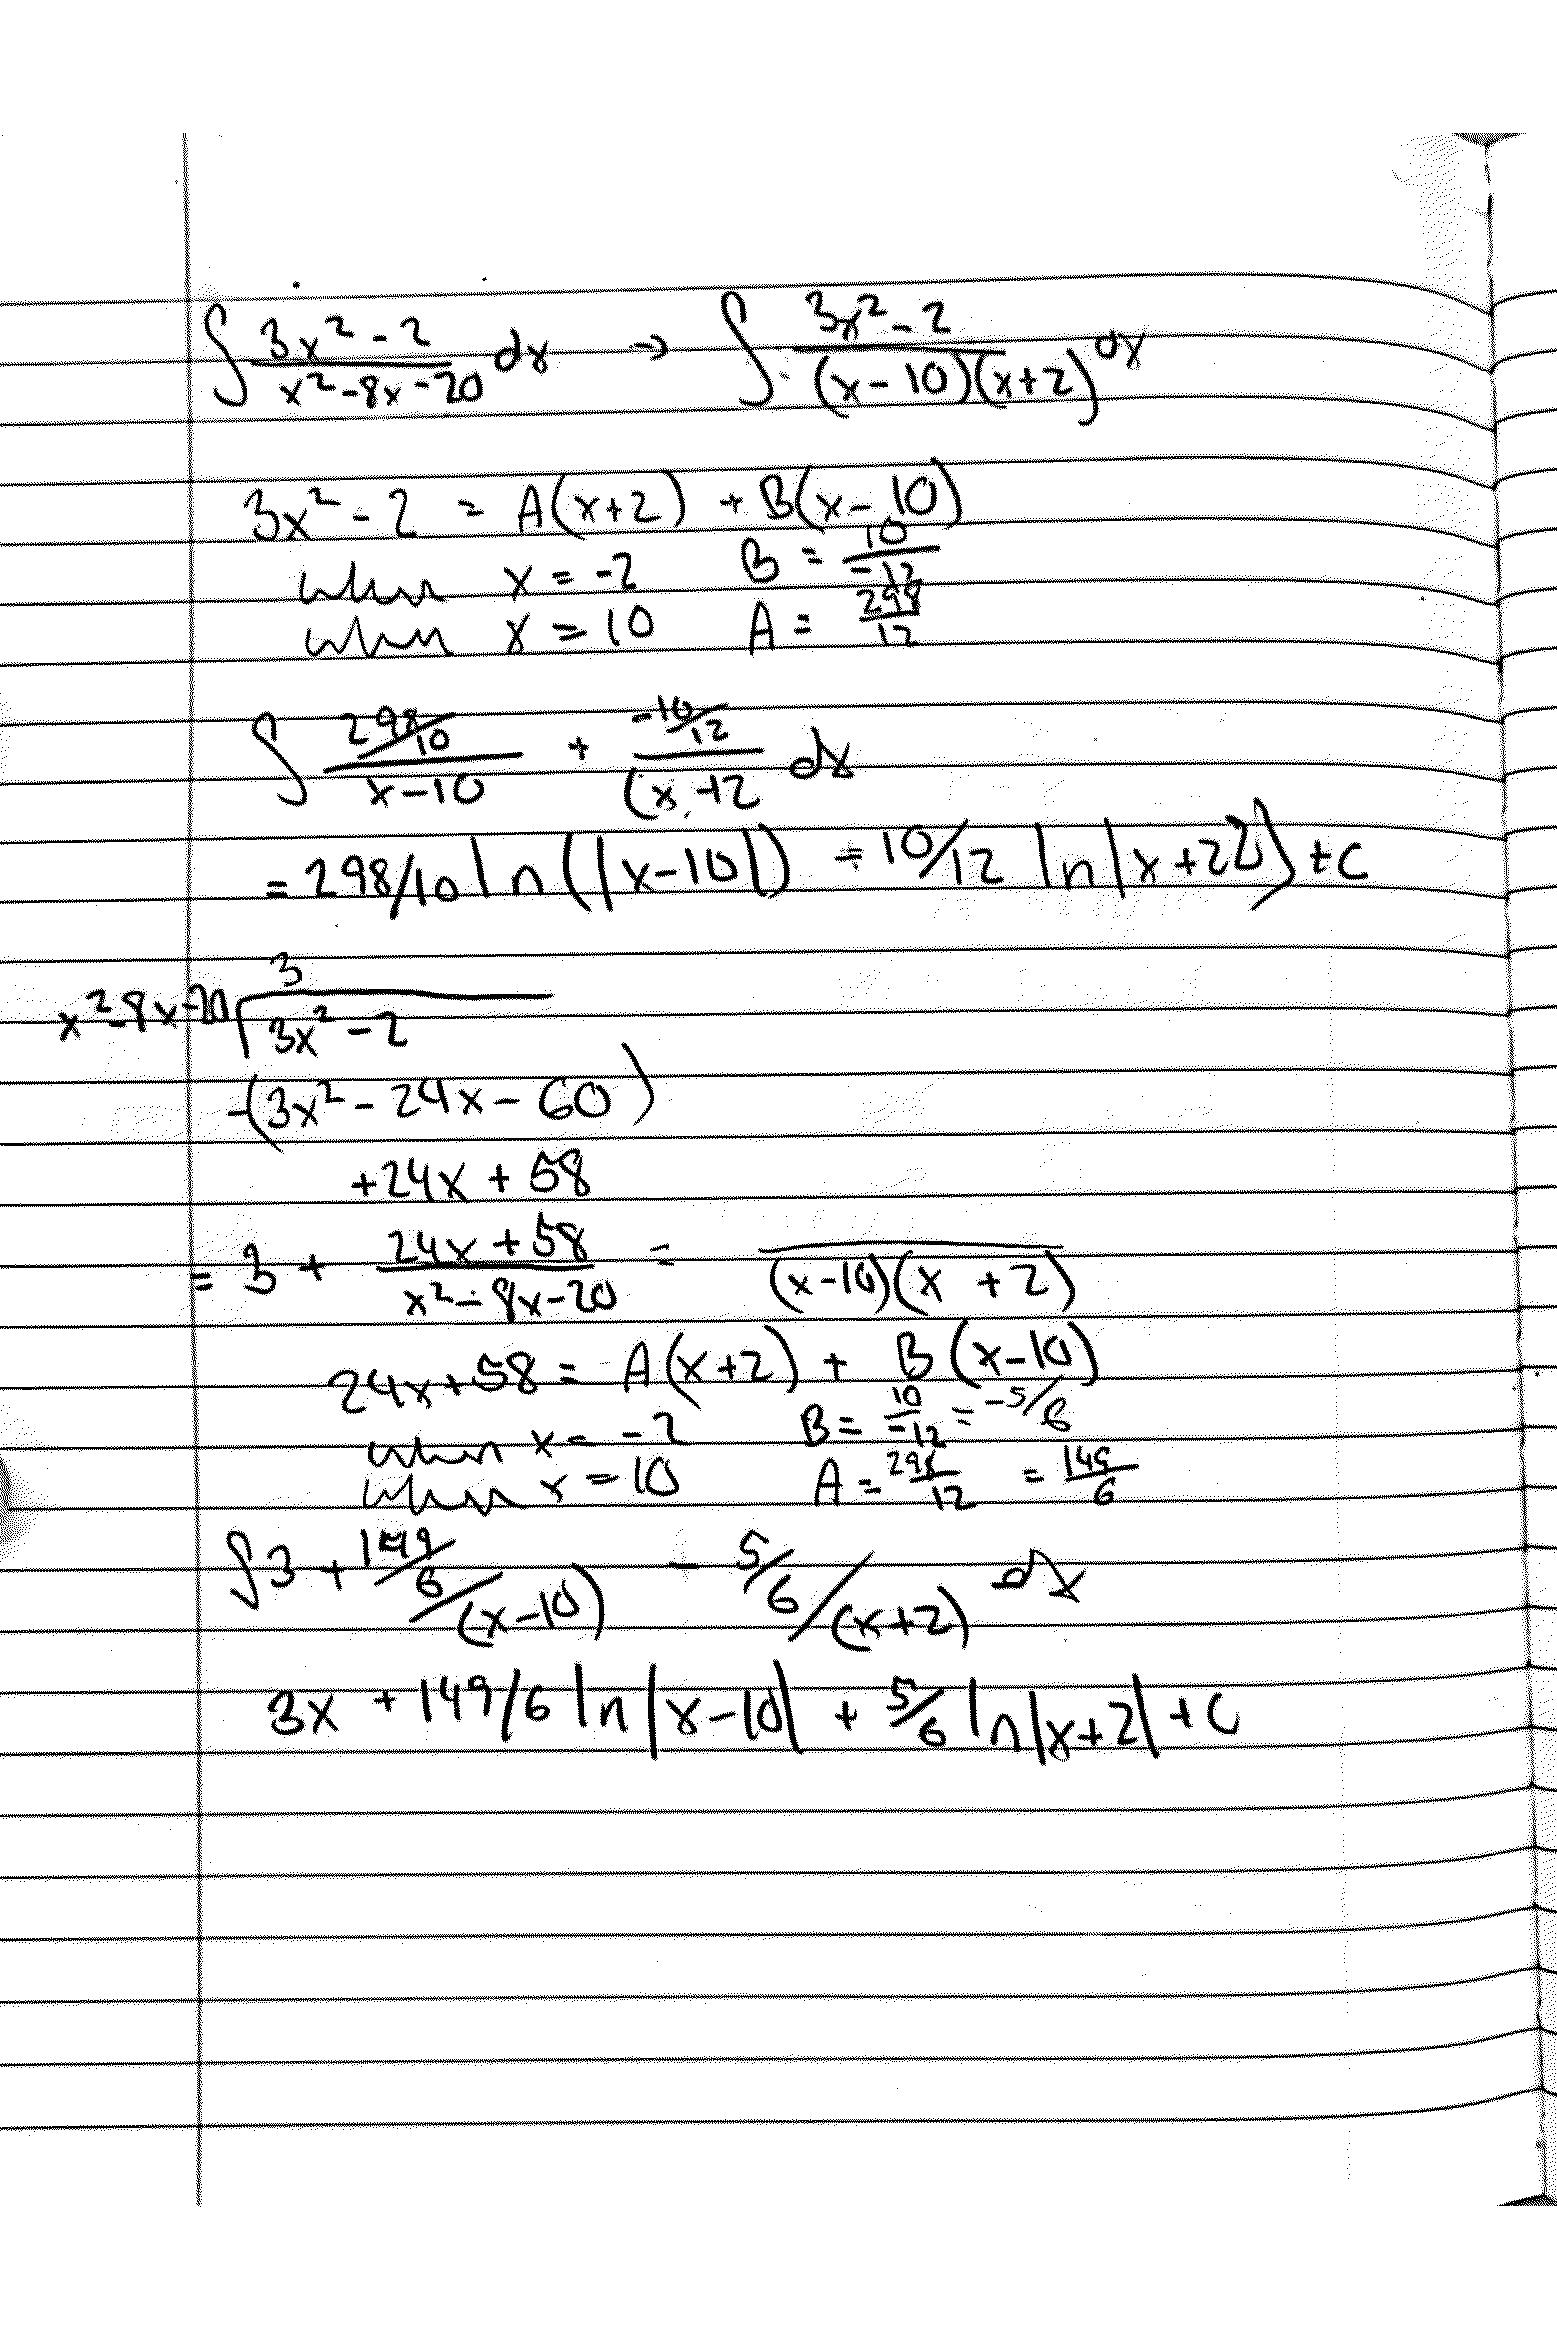 ∫ (3x² - 2)/(x² - 8x - 20) dx → ∫ (3x² - 2)/((x - 10)(x + 2)) dx
3x² - 2 = A(x+2) + B(x - 10)
when x = -2 B = 10/-12
when x = 10 A = 298/12
∫ (298/10)/(x - 10) + (-10/12)/(x + 2 dx
= 298/10 ln(|x - 10|) ÷ 10/12 ln|x + 22) + C
3
x² - 8x - 20 √ 3x² - 2
-(3x² - 24x - 60)
+24x + 58
= 3 + (24x + 58)/(x² - 8x - 20) = /((x - 10)(x + 2))
24x + 58 = A(x+2) + B(x - 10)
when x = -2 B = 10/-12 = -5/6
when x = 10 A = 298/12 = 149/6
∫ 3 + 149/6/(x - 10) - 5/6/(x + 2) dx
3x + 149/6 ln|x - 10| + 5/6 ln|x + 2| + C